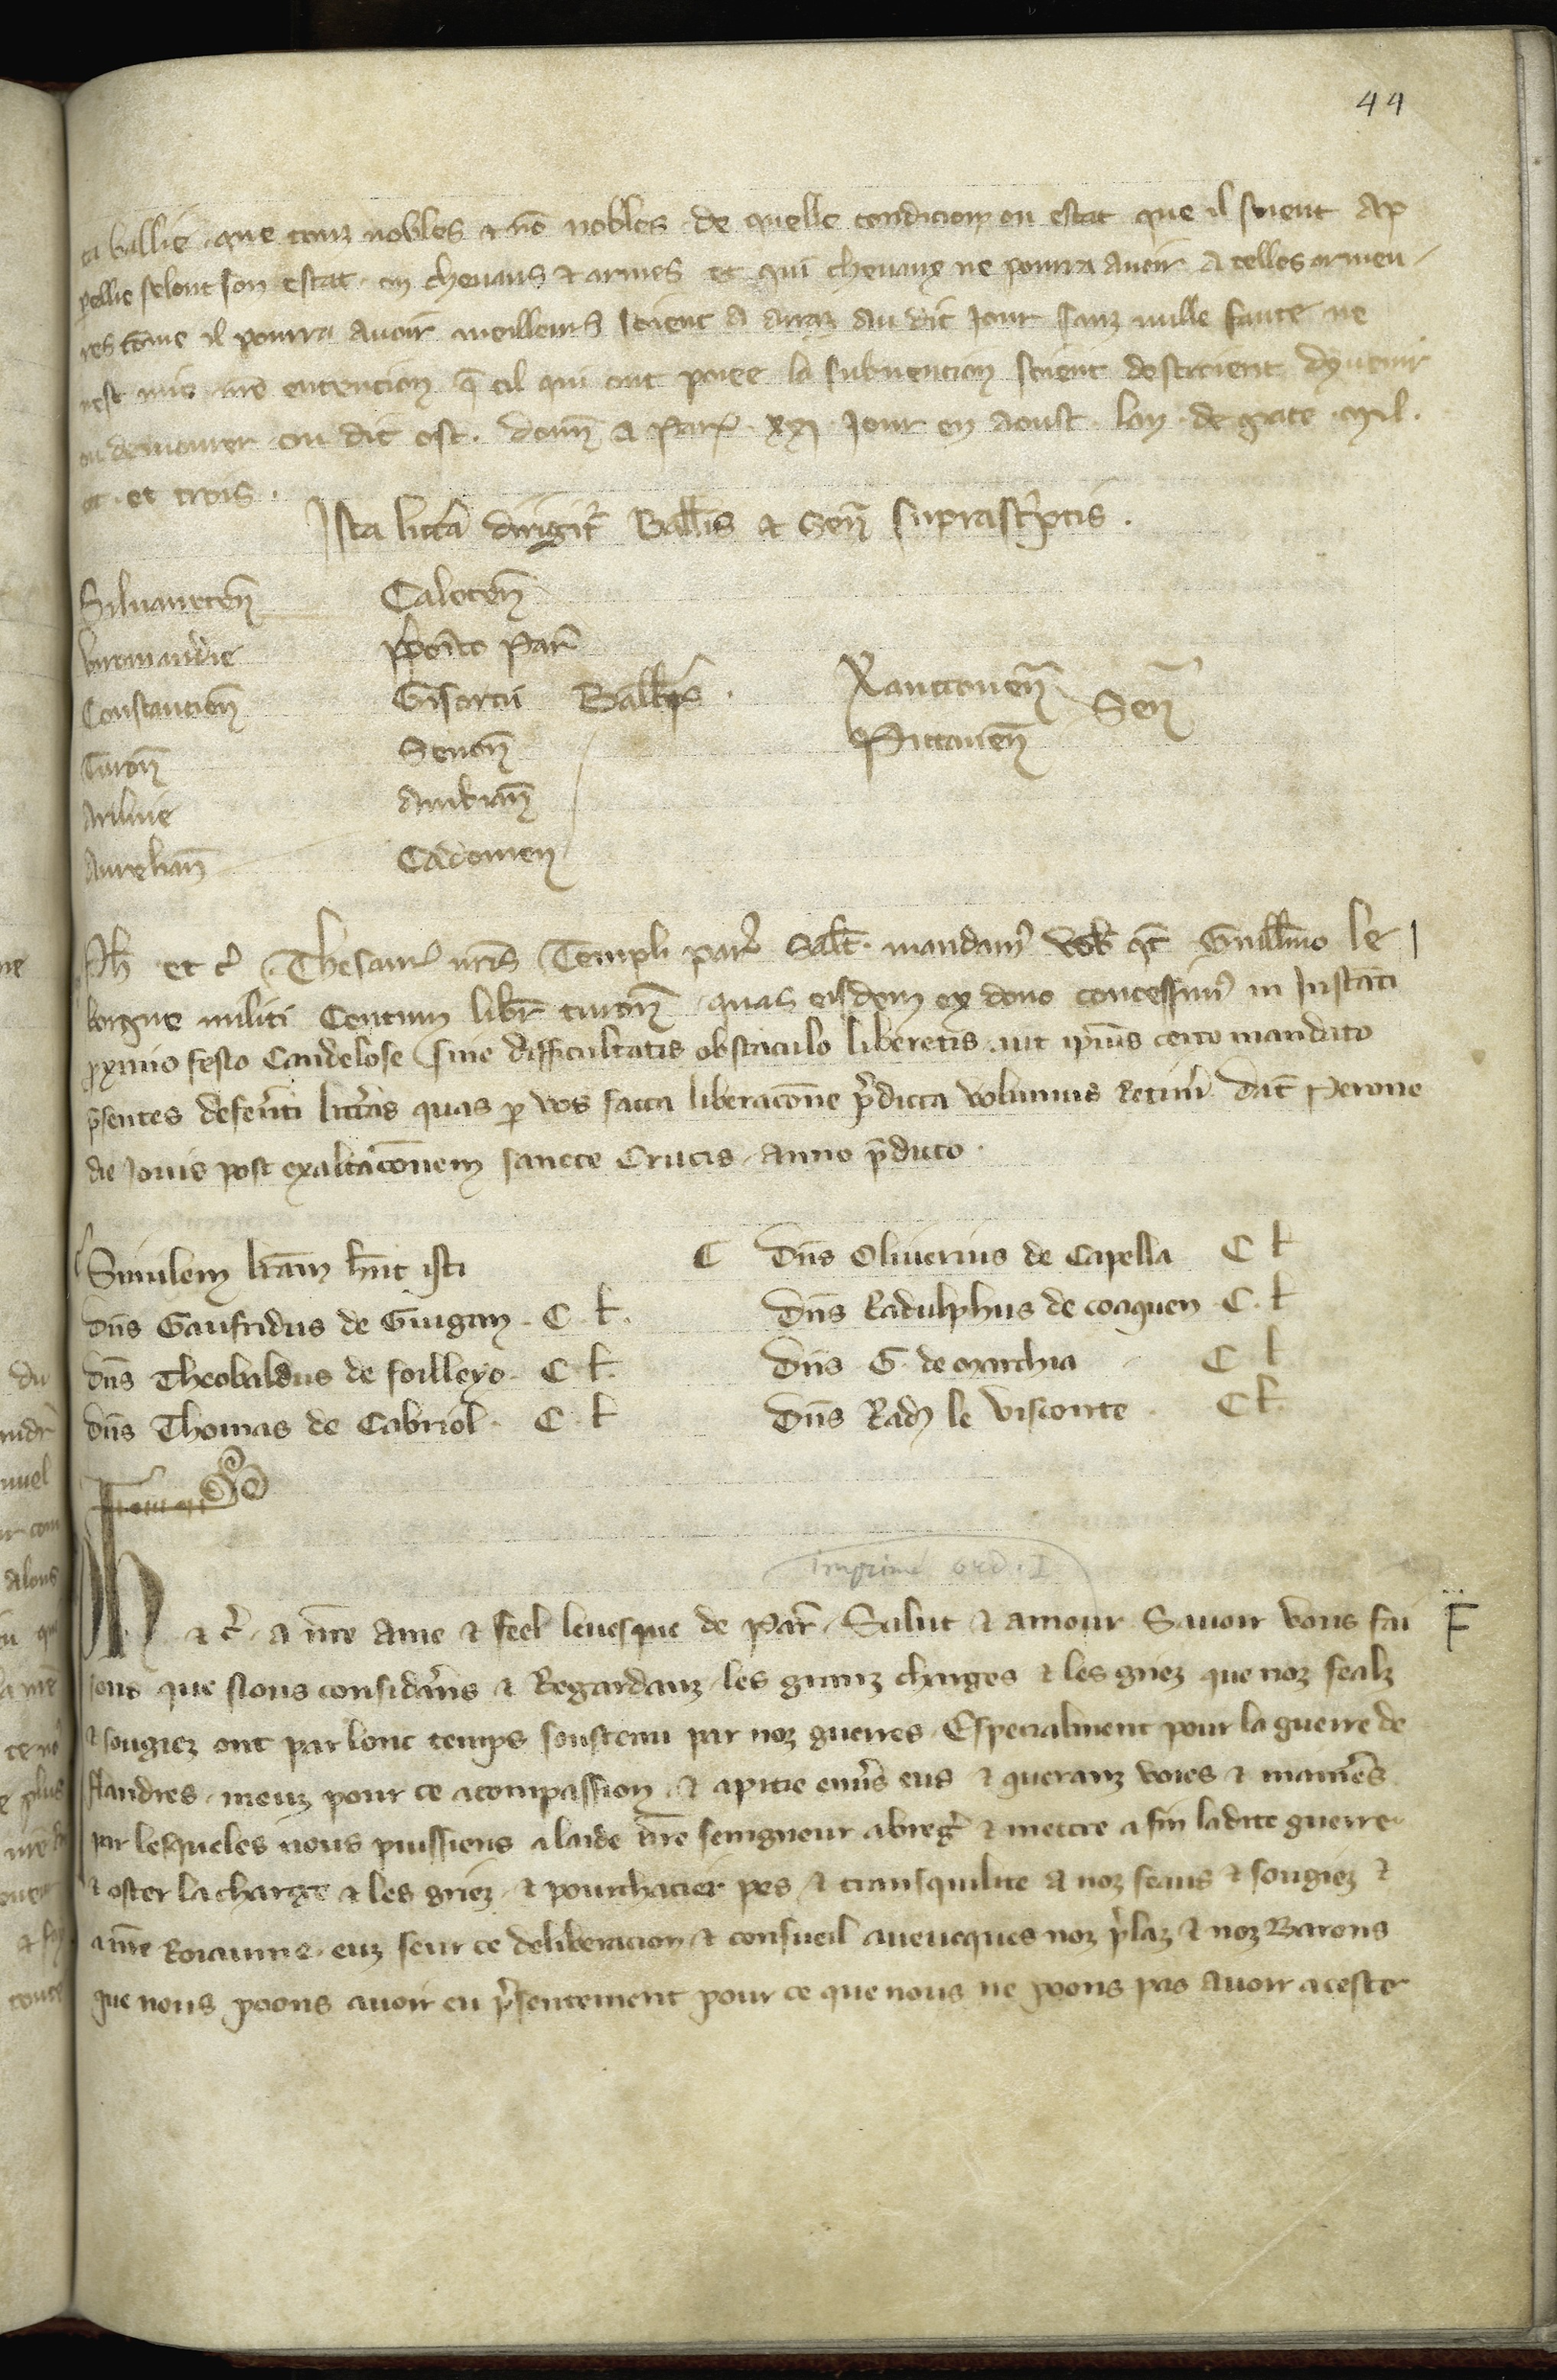 44
ta baillie que touz nobles & nō nobles de quelle condicion ou estat que il soient Ap
pellie selont son estat en chevaus & armes et qui chevaux ne pourra avoir A telles armeu
res cōme il pourra avoir meilleurs soient A Arraz Au dit Jour sanz nulle faute ne
nest mie nrē entencion q̄ cil qui ont poiee la subvencion soient destreient dy venir
ou demourer ou dit ost. Donn̄ a Par̄ xxj Jour en Aoust lan de grace mil.
et trois.
Ista littā dirigit̄ Ballīs & Sen̄ suprasc̄ptis.
Silvanecten̄
Viromandie
Constancien̄
Turon̄
Arlvnie
Aurelian̄
Caleten̄
p̄poīto Par̄
Gisorcii Ballīs
Senon̄
Ambian̄
Cadomen̄
Xanctonen̄
Pictaven̄ Sen̄
Ph̄ et c̄ Thesaur̄ nr̄is Templi par̄ Salt̄ mandam̄ vob̄ qt̄ Guillm̄o le
borgne militi Centum libr̄ turon̄ quas eisdem ex dono concessim̄ in Instāti
p̄ximo festo Candelose sine difficultatis obstaculo liberetis aut ip̄ius certo mandato
p̄sentes defer̄nti litt̄as quas p̄ vos facta liberacōne p̄dicta volumus Retin̄i Dat̄ Perone
die Jovis post exaltacōnem sancte Crucis Anno p̄dicto.
Similem lrām hn̄t isti
Dn̄s Gaufridus de Gingan. C. l.
Dn̄s Theobaldus de foilleyo. C l.
Dn̄s Thomas de Cabriol. C. l
C Dn̄s Oliverius de Capella C l
Dn̄s Radulphus de coaquen C. l
Dn̄s G. de Marchia C l
Dn̄s Rad̄ le Visconte C l.
Imprimé ord. I
Ph̄ & c̄ A nr̄e Ame & feel levesque de Par̄ Salut & amour Savoir vous fai
F
sons que nous considerās & Regardanz les granz charges & les griez que noz fealz
& sougiez ont par lonc temps soustenu par noz guerres Especialment pour la guerre de
flandres meuz pour ce a compassion & a pitie env̄s eus & queranz voies & manier̄es
par lesqueles nous puissiens a laide nr̄e seingneur abreḡ & mettre a fin ladite guerre
& oster la charge & les griez & pourchacier pes & transquilite A noz feaus & sougiez &
a nr̄e Roiaume euz seur ce deliberacion & conseil aveucques noz p̄laz & noz Barons
que nous poons avoir eu p̄sentement pour ce que nous ne poons pas Avoir a cester